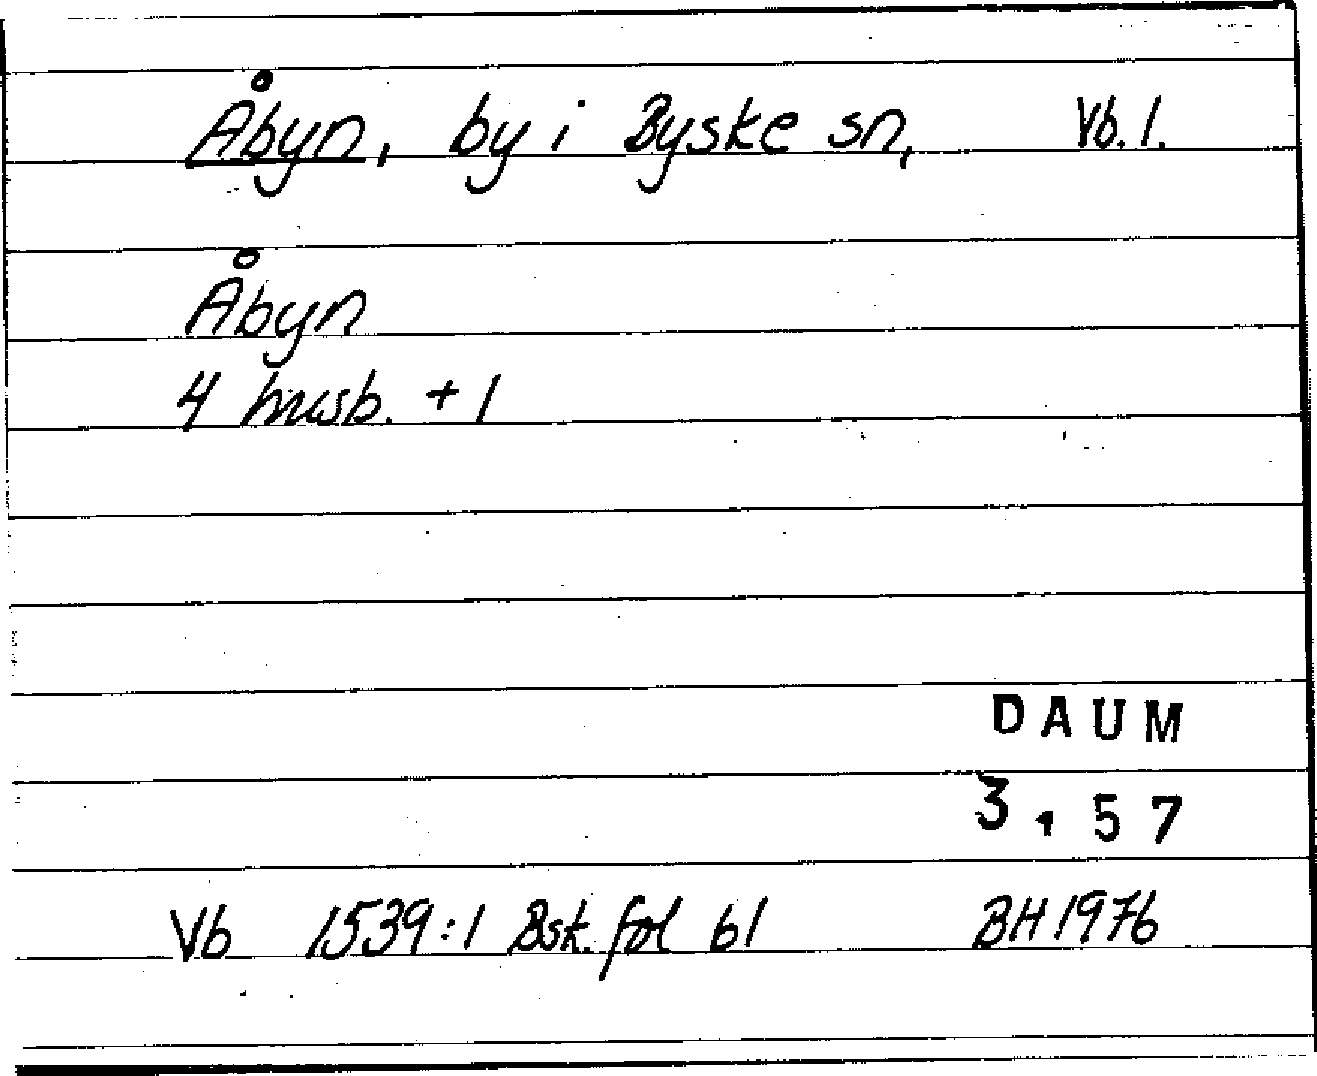 Åbyn, by i Byske sn, Vb. l.
Åbyn
4 husb. + 1
DAUM
3, 57
Vb 1539:1 Bsk. fol 61 BH 1976